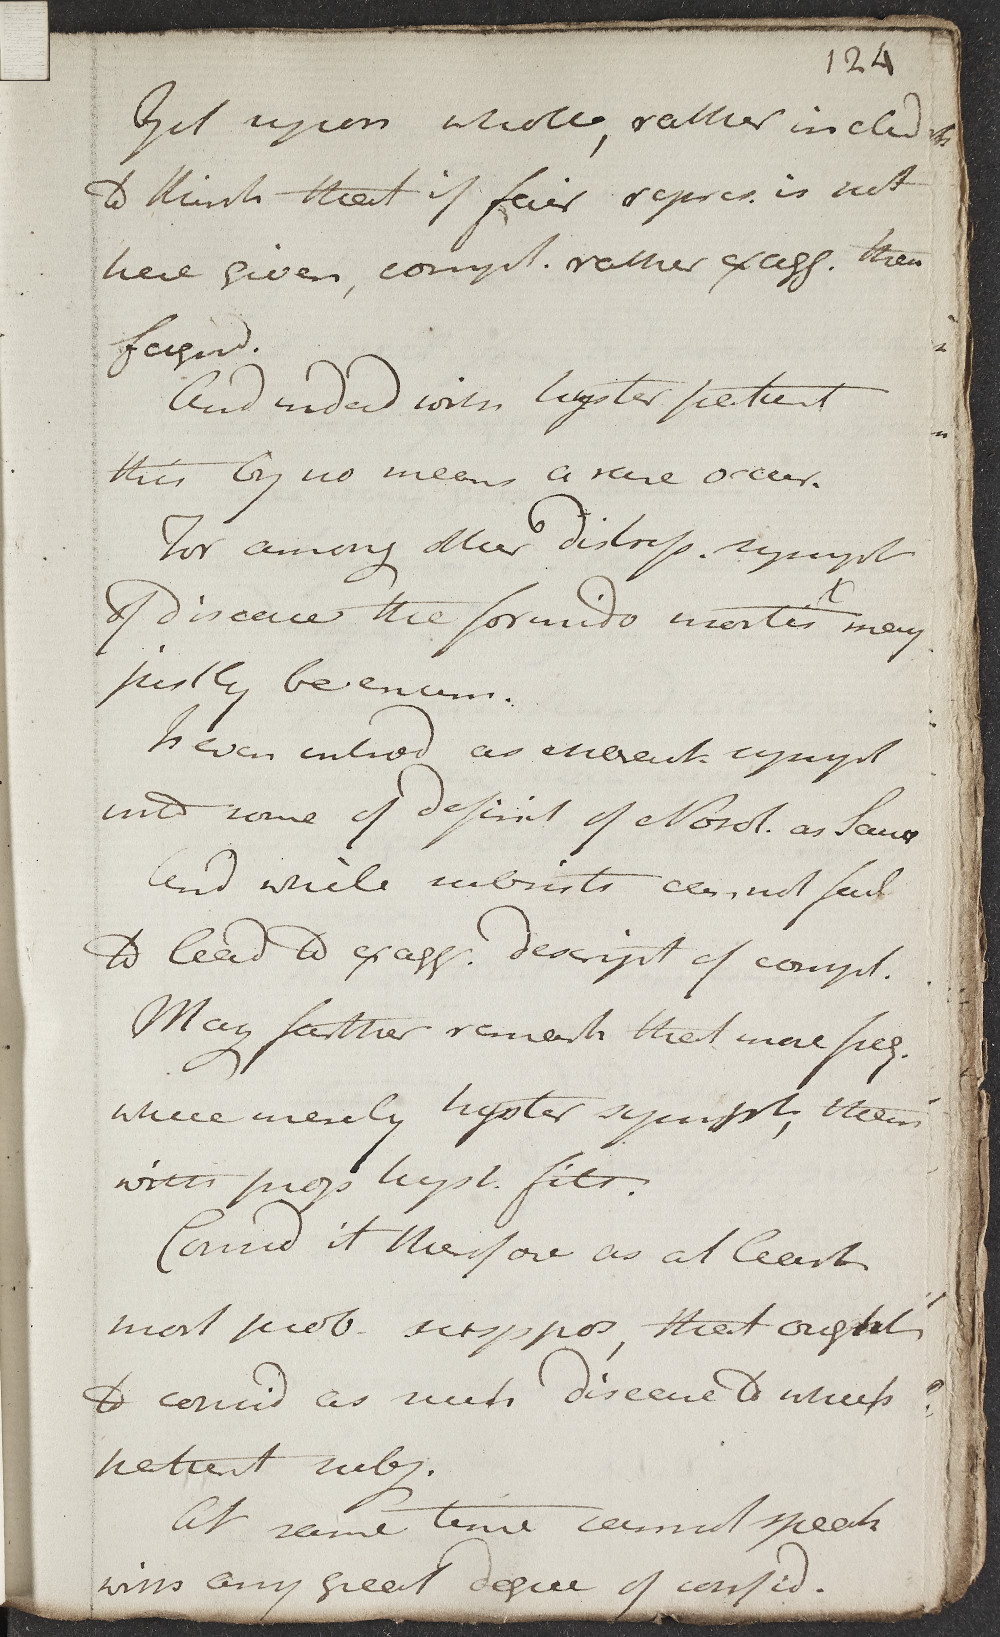 124
Yet upon whole, rather inclind
to think that if fair repres. is not
here given, compl. rather exagg. than
feignd.
And indeed with hyster patient
this by no means a rare occur.
For among other distress. sympt
of disease the formido mortis x may
justly be enum.
Is even introd as sympt
into some of definit of Nosol. as Sauv
And while subsists cannot fail
to lead to exagg. descript of compl.
May farther remark that more freq.
where merely hyster sympt, than
with prop hyst. fits.
Consid it therefore as at least
most prob. suppos, that ought
to consid as such disease to which
patient subj.
At same time cannot speak
with any great degree of confid.